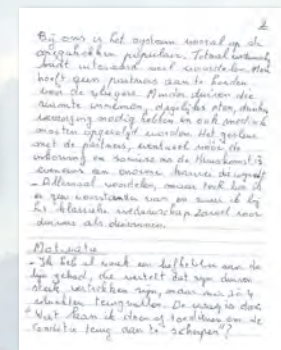 2
Bij ons is het systeem vooral op de
opgehokken populair. Totaal weduwschap
biedt uiteraard veel voordelen. Men
hoeft geen partners aan te houden
van de vliegers. Minder duiven die
ruimte innemen, dagelijks eten, drinken
verzorging nodig hebben en ook medisch
moeten opgevolgd worden. Het gesleur
met de partners, eventueel vóór de
inkorving en sowieso na de thuiskomst is
eveneens een enorme karwei die wegvalt
- Allemaal voordelen, maar toch ben ik
er geen voorstander van en zweer ik bij
het klassieke weduwschap zowel voor
duivers als duivinnen.
Motivatie
- Ik heb al vaak een liefhebber aan de
lijn gehad, die vertelt dat zijn duiven
sterk vertrokken zijn, maar na 3 à 4
vluchten terugvallen. De vraag is dan
"Wat kan ik doen of toedienen om de
conditie terug aan te scherpen"?